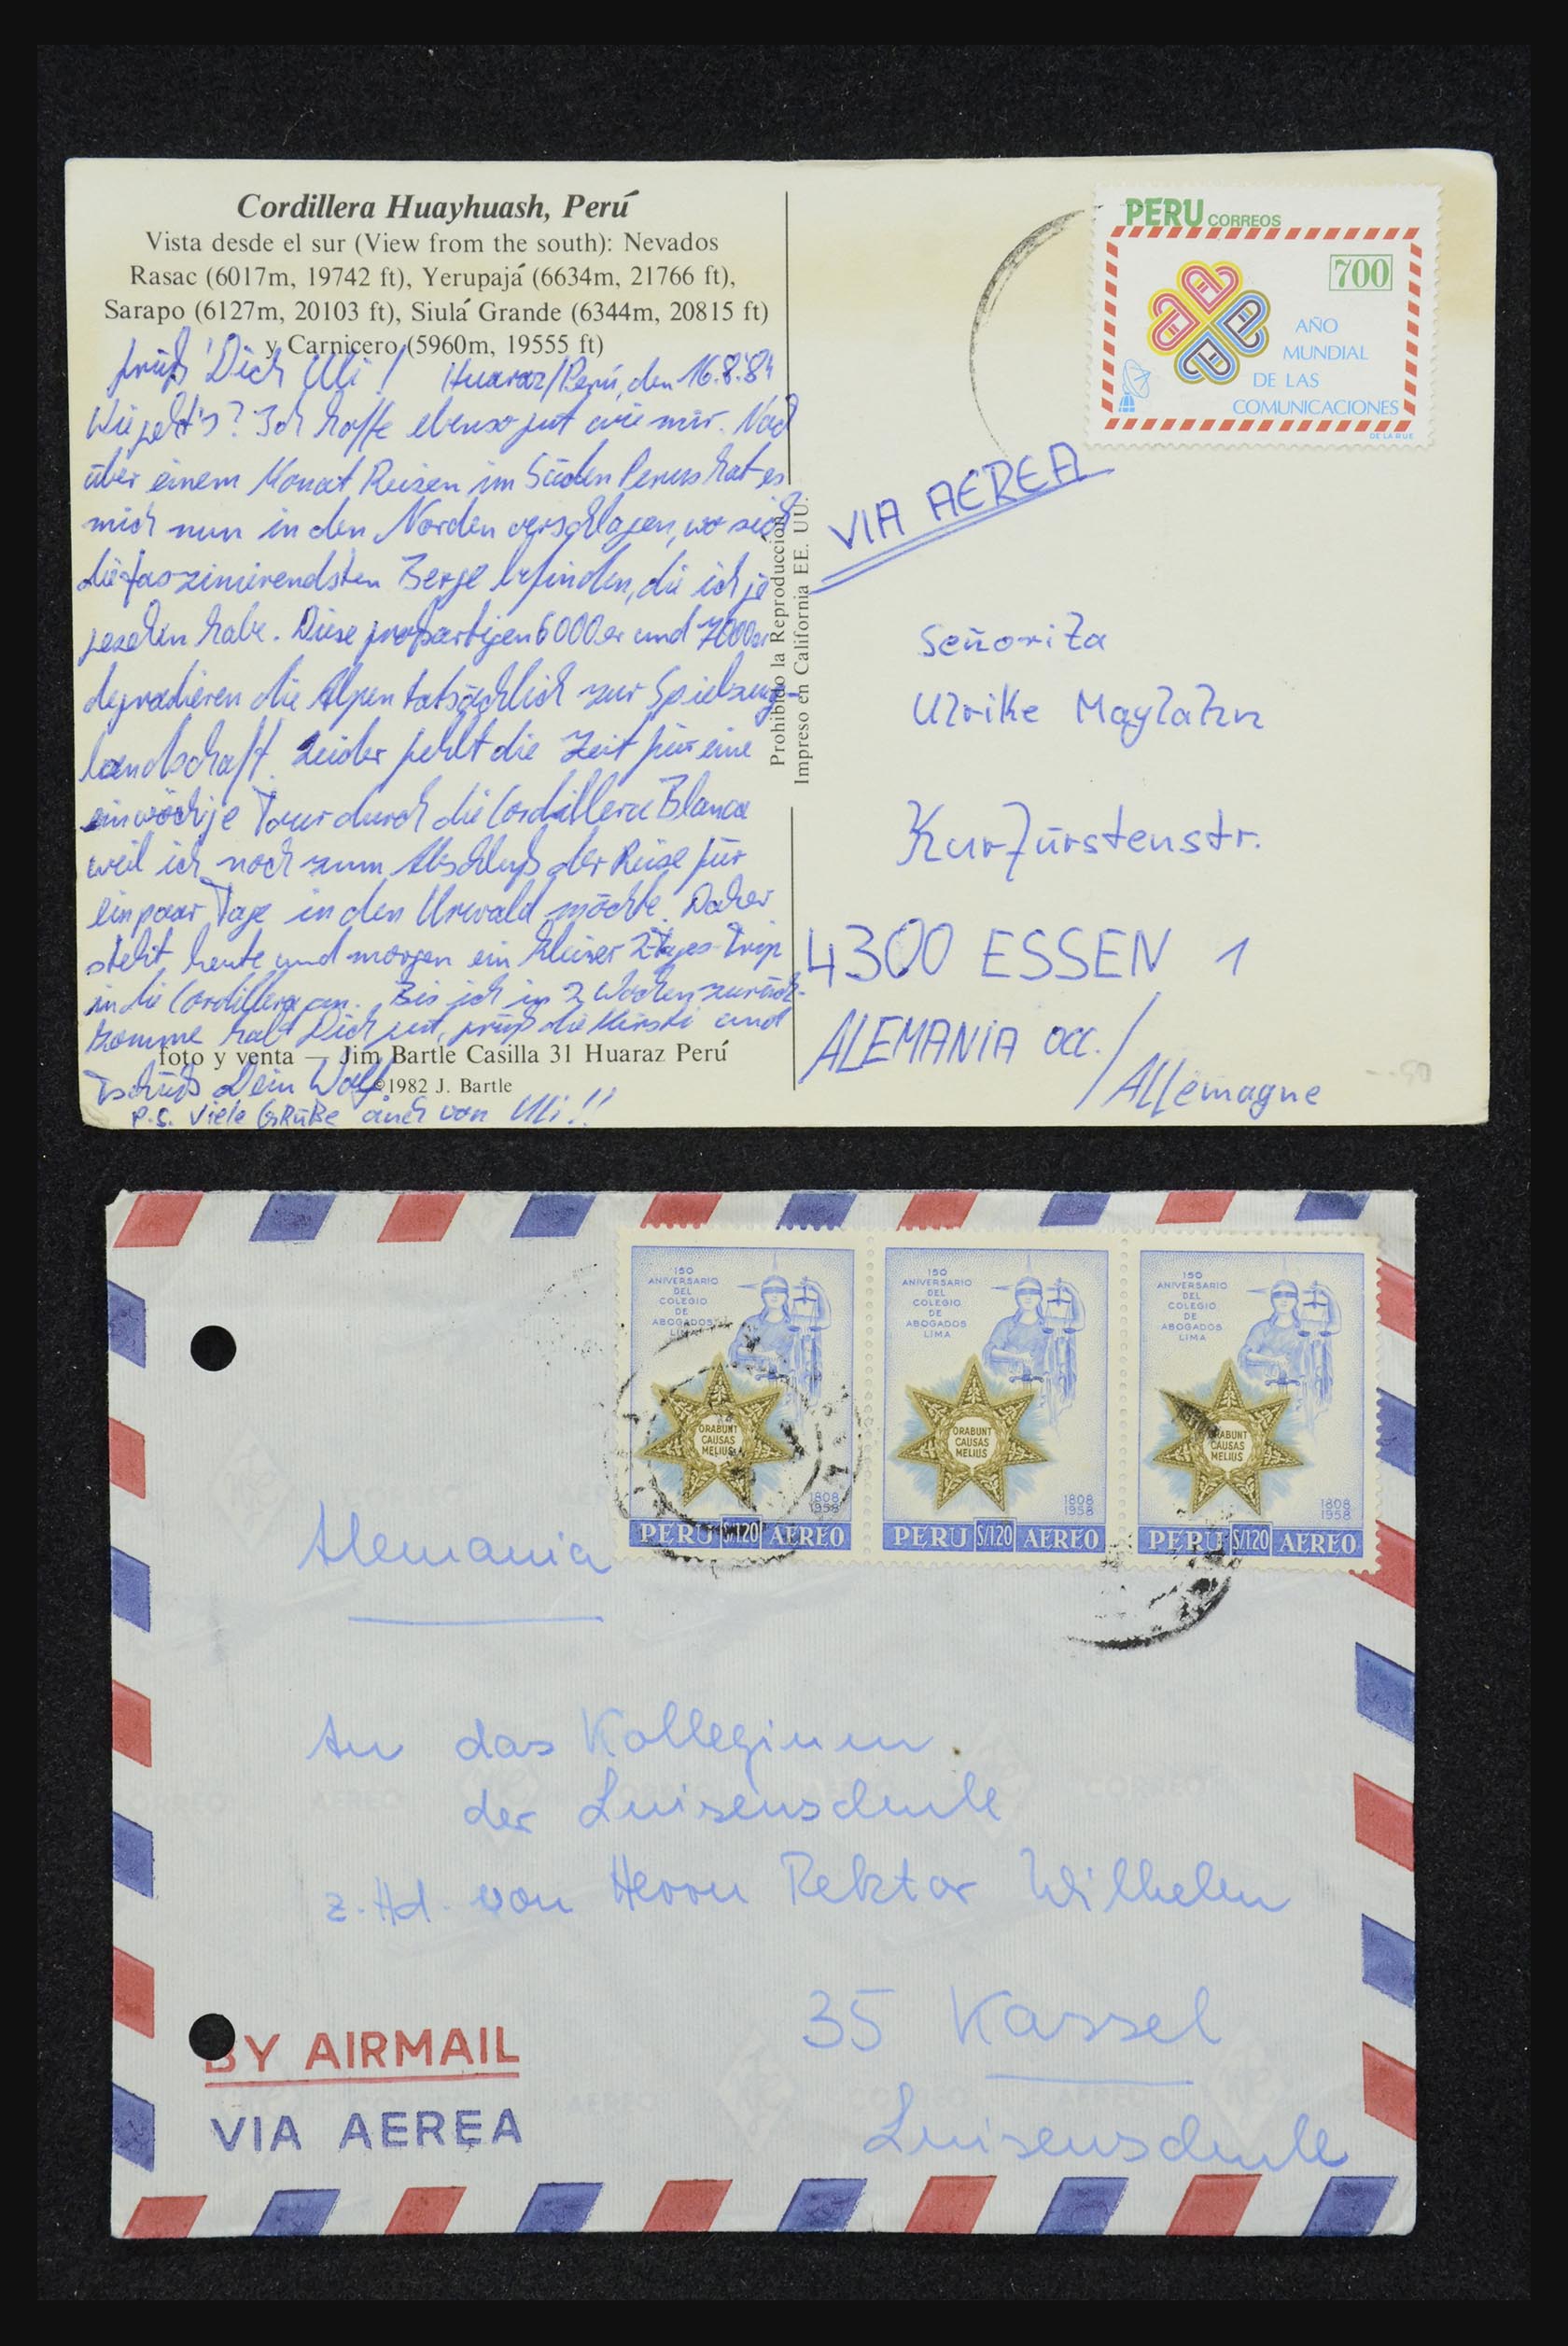 Cordillera Huayhuash, Perú
Vista desde el sur (View from the south): Nevados
Rasac (6017m, 19742 ft), Yerupajá (6634m, 21766 ft),
Sarapo (6127m, 20103 ft), Siulá Grande (6344m, 20815 ft)
y Carnicero (5960m, 19555 ft)
Grüß Dich Uli! Huaraz/Perú, den 16.8.84
Wie geht's? Ich hoffe ebenso gut wie mir. Nach
über einem Monat Reisen im Süden Perus hat es
mich nun in den Norden verschlagen, wo sich
die faszinierendsten Berge befinden, die ich je
gesehen habe. Diese großartigen 6000er und 7000er
degradieren die Alpen tatsächlich zur Spielzeug-
landschaft. Leider fehlt die Zeit für eine
einwöchige Tour durch die Cordillera Blanca
weil ich noch zum Abschluß der Reise für
ein paar Tage in den Urwald möchte. Daher
steht heute und morgen ein kleiner 2-Tages-Trip
in die Cordillera an. Bis ich in 2 Wochen zurück-
komme halt Dich gut, grüß die und
foto y venta — Jim Bartle Casilla 31 Huaraz Perú
Tschüß Dein Wolf
©1982 J. Bartle
P.S. Viele GRÜßE auch von Uli!!
Prohibido la Reproducción
Impreso en California EE. UU.
PERU CORREOS
700
AÑO
MUNDIAL
DE LAS
COMUNICACIONES
DE LA RUE
VIA AEREA
Señorita
Ulrike
Kurfürstenstr.
4300 ESSEN 1
ALEMANIA occ. /
Allemagne
150
ANIVERSARIO
DEL
COLEGIO
DE
ABOGADOS
LIMA
ORABUNT
CAUSAS
MELIUS
1808
1958
PERU S/1.20 AEREO
150
ANIVERSARIO
DEL
COLEGIO
DE
ABOGADOS
LIMA
ORABUNT
CAUSAS
MELIUS
1808
1958
PERU S/1.20 AEREO
150
ANIVERSARIO
DEL
COLEGIO
DE
ABOGADOS
LIMA
ORABUNT
CAUSAS
MELIUS
1808
1958
PERU S/1.20 AEREO
Alemania
An das Kollegium
der Luisenschule
z. Hd. von Herrn Rektor Wilhelm
35 Kassel
Luisenschule
BY AIRMAIL
VIA AEREA